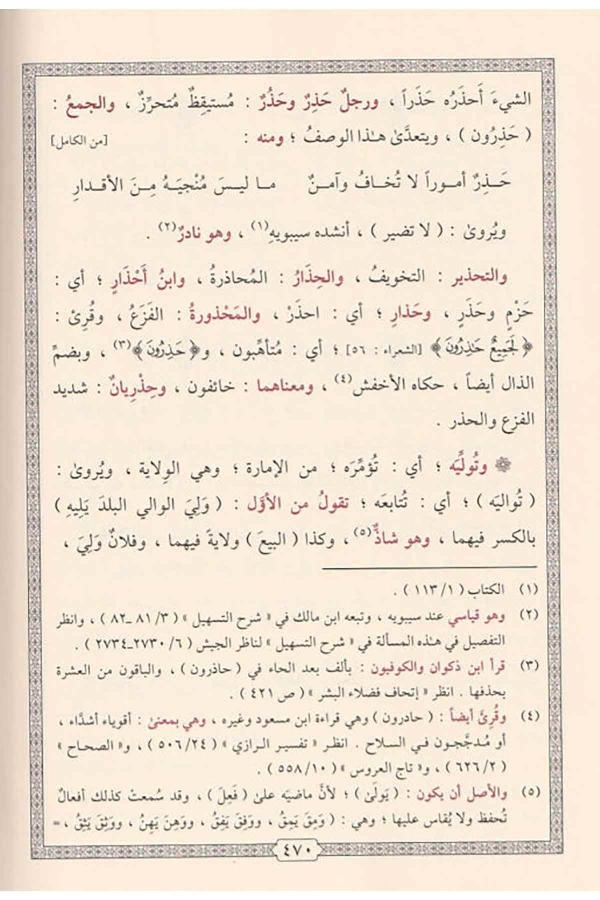 الشيءَ أَحذَرُه حَذَراً ، ورجلٌ حَذِرٌ وحَذُرٌ : مُستيقِظٌ مُتحرِّزٌ ، والجمعُ :
( حَذِرُون ) ، ويتعدَّىٰ هـٰذا الوصفُ ؛ ومنه : [من الكامل]
حَــذِرٌ أمــوراً لا تُخــافُ وآمــنٌ مــا ليــسَ مُنْجِيَـهُ مِـنَ الأقــدارِ
ويُروىٰ : ( لا تضير ) ، أنشده سيبويهِ(١) ، وهو نادرٌ(٢) .
والتحذير : التخويفُ ، والحِذَارُ : المُحاذرةُ ، وابنُ أَحْذَارٍ ؛ أي :
حَزْمٍ وحَذَرٍ ، وحَذارِ ؛ أي : احذَرْ ، والمَحْذورةُ : الفَزَعُ ، وقُرِئَ :
﴿ لَجَمِيعٌ حَٰذِرُونَ ﴾ [الشعراء : ٥٦] ؛ أي : مُتأهِّبون ، و﴿ حَذِرُونَ ﴾(٣) ، وبضمِّ
الذال أيضاً ، حكاه الأخفش(٤) ، ومعناهما : خائفون ، وحِذْرِيانٌ : شديد
الفزع والحذر .
۞ وتُولِّيَه ؛ أي : تُؤمِّرَه ؛ من الإمارة ؛ وهي الوِلاية ، ويُروىٰ :
( تُواليَه ) ؛ أي : تُتابعَه ؛ تقولُ من الأوَّل : ( وَلِيَ الوالي البلدَ يَلِيهِ )
بالكسر فيهما ، وهو شاذٌّ(٥) ، وكذا ( البيعَ ) ولايةً فيهما ، وفلانٌ وَلِيَ ،
(١) الكتاب ( ١١٣/١ ) .
(٢) وهو قياسي عند سيبويه ، وتبعه ابن مالك في « شرح التسهيل » ( ٣/ ٨١ـ٨٢ ) ، وانظر
التفصيل في هـٰذه المسألة في « شرح التسهيل » لناظر الجيش ( ٦/ ٢٧٣٠ـ٢٧٣٤ ) .
(٣) قرأ ابن ذكوان والكوفيون : بألف بعد الحاء في ( حاذرون ) ، والباقون من العشرة
بحذفها . انظر « إتحاف فضلاء البشر » ( ص ٤٢١ ) .
(٤) وقُرِئَ أيضاً : ( حادرون ) وهي قراءة ابن مسعود وغيره ، وهي بمعنىٰ : أقوياء أشدَّاء ،
أو مُدجَّجون في السلاح . انظر « تفسير الرازي » ( ٥٠٦/٢٤ ) ، و« الصحاح »
( ٦٢٦/٢ ) ، و« تاج العروس » ( ٥٥٨/١٠ ) .
(٥) والأصل أن يكون : ( يَولَىٰ ) ؛ لأنَّ ماضيَه علىٰ ( فَعِلَ ) ، وقد سُمعتْ كذلك أفعالٌ
تُحفظ ولا يُقاس عليها ؛ وهي : ( وَمِقَ يَمِقُ ، ووَفِقَ يَفِقُ ، ووَهِنَ يَهِنُ ، ووَثِقَ يَثِقُ ، =
٤٧٠